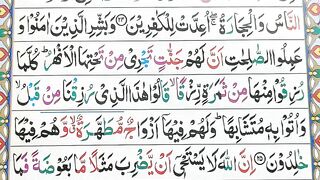 النَّاسُ وَالْحِجَارَةُ ۖ اُعِدَّتْ لِلْكٰفِرِيْنَ ﴿۲۴﴾ وَبَشِّرِ الَّذِيْنَ اٰمَنُوْا وَ
عَمِلُوا الصّٰلِحٰتِ اَنَّ لَهُمْ جَنّٰتٍ تَجْرِيْ مِنْ تَحْتِهَا الْاَنْهٰرُ ؕ كُلَّمَا
رُزِقُوْا مِنْهَا مِنْ ثَمَرَةٍ رِّزْقًا ۙ قَالُوْا هٰذَا الَّذِيْ رُزِقْنَا مِنْ قَبْلُ ۙ
وَاُتُوْا بِهٖ مُتَشَابِهًا ؕ وَلَهُمْ فِيْهَاۤ اَزْوَاجٌ مُّطَهَّرَةٌ ۙ وَّهُمْ فِيْهَا
خٰلِدُوْنَ ﴿۲۵﴾ اِنَّ اللّٰهَ لَا يَسْتَحْيٖۤ اَنْ يَّضْرِبَ مَثَلًا مَّا بَعُوْضَةً فَمَا